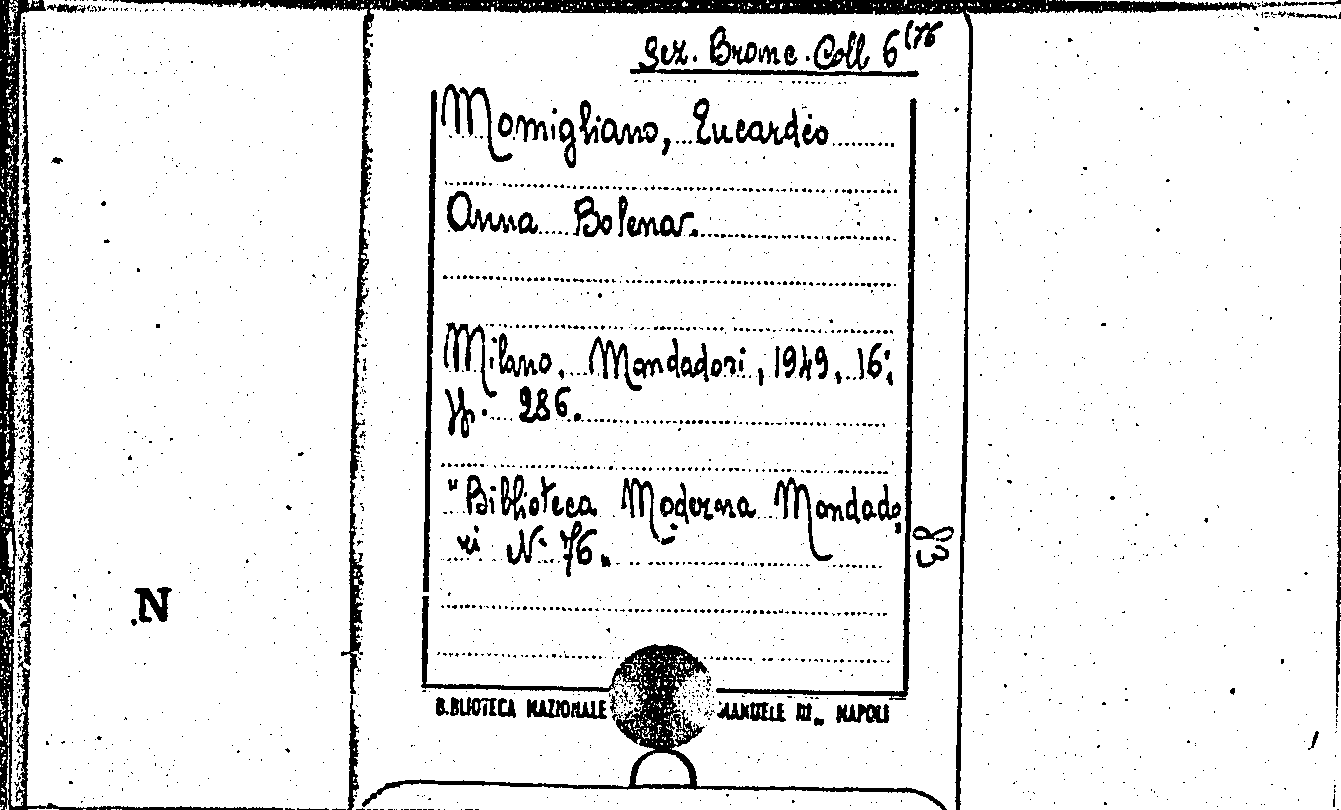 Sez. Branc. Coll 6(76
Momigliano, Eucardio
Anna Bolena.
Milano, Mondadori, 1949, 16°,
pp. 286.
"Biblioteca Moderna Mondado,
ri N. 76"
83
N
B.BLIOTECA NAZIONALE MANUELE III„ NAPOLI